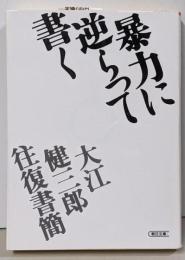 暴力に
逆らって
書く
大江
健三郎
往復書簡
朝日文庫